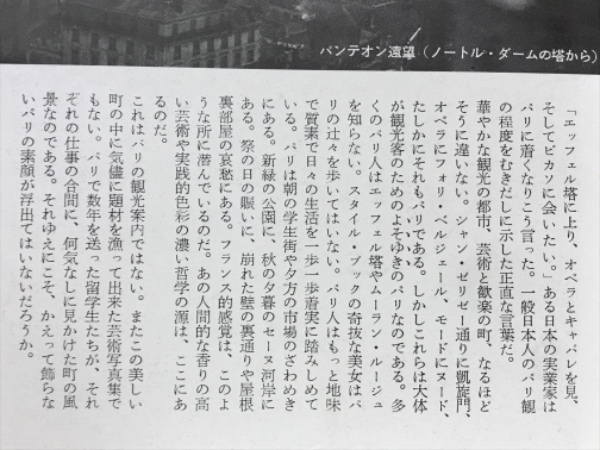 パンテオン遠望（ノートル・ダームの塔から）
「エッフェル塔に上り、オペラとキャバレを見、
そしてピカソに会いたい。」ある日本の実業家は
パリに着くなりこう言った。一般日本人のパリ観
の程度をむきだしに示した正直な言葉だ。
華やかな観光の都市、芸術と歓楽の町、なるほど
そうに違いない。シャン・ゼリゼー通りに凱旋門、
オペラにフォリ・ベルジェール、モードにヌード、
たしかにそれもパリである。しかしこれらは大体
が観光客のためのよそゆきのパリなのである。多
くのパリ人はエッフェル塔やムーラン・ルージュ
を知らない。スタイル・ブックの奇抜な美女はパ
リの辻々を歩いてはいない。パリ人はもっと地味
で質素で日々の生活を一歩一歩着実に踏みしめて
いる。パリは朝の学生街や夕方の市場のざわめき
にある。新緑の公園に、秋の夕暮のセーヌ河岸に
ある。祭の日の賑いに、崩れた壁の裏通りや屋根
裏部屋の哀愁にある。フランス的感覚は、このよ
うな所に潜んでいるのだ。あの人間的な香りの高
い芸術や実践的色彩の濃い哲学の源は、ここにあ
るのだ。
これはパリの観光案内ではない。またこの美しい
町の中に気儘に題材を漁って出来た芸術写真集で
もない。パリで数年を送った留学生たちが、それ
ぞれの仕事の合間に、何気なしに見かけた町の風
景なのである。それゆえにこそ、かえって飾らな
いパリの素顔が浮出てはいないだろうか。